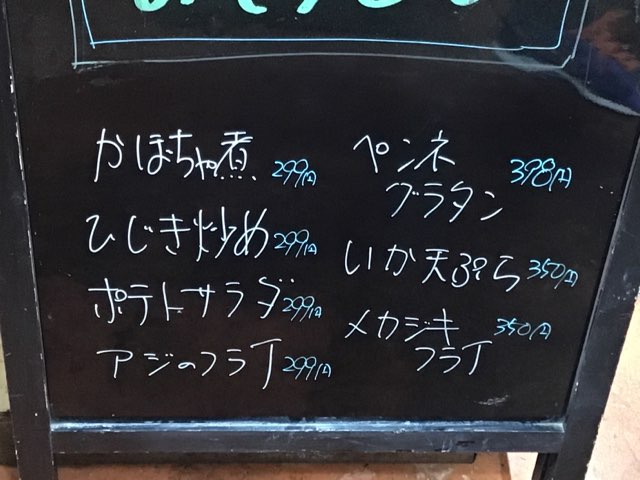 かぼちゃ煮 299円
ひじき炒め 299円
ポテトサラダ 299円
アジのフライ 299円
ペンネ 398円
グラタン
いか天ぷら 350円
メカジキ 350円
フライ